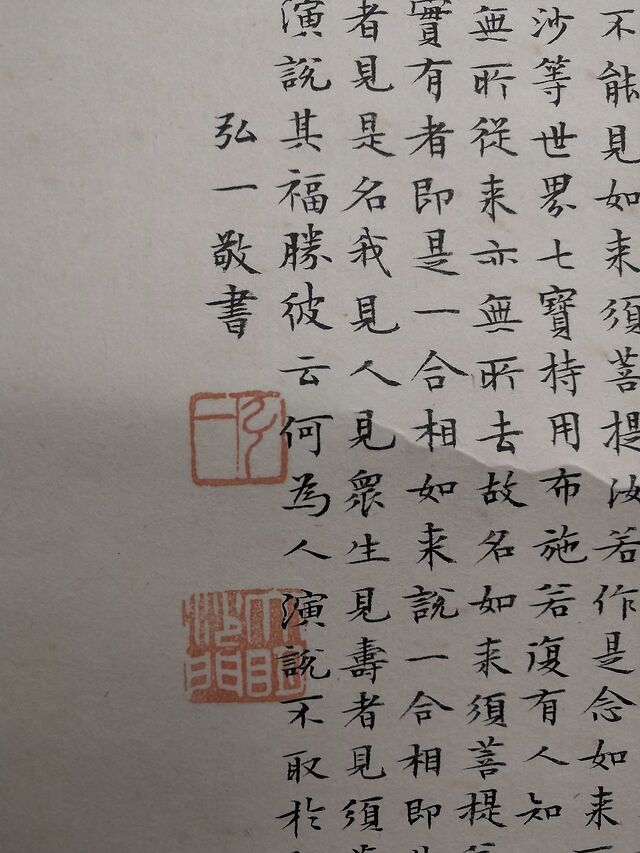 不能見如来須菩提汝若作是念如来
沙等世界七寶持用布施若復有人知
無所從来亦無所去故名如来須菩提
實有者即是一合相如来說一合相即
者見是名我見人見眾生見壽者見須
演說其福勝彼云何為人演說不取於
弘一敬書
弘一